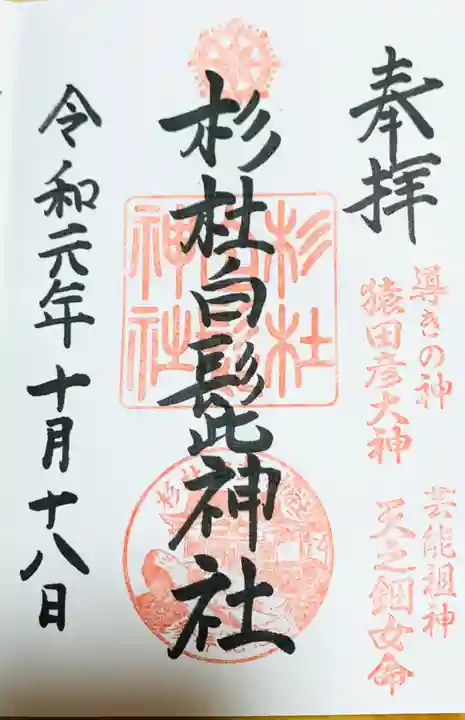 奉拝
導きの神
猿田彦大神
芸能祖神
天之鈿女命
杉杜白髭神社
杉杜
白髭
神社
令和元年十月十八日